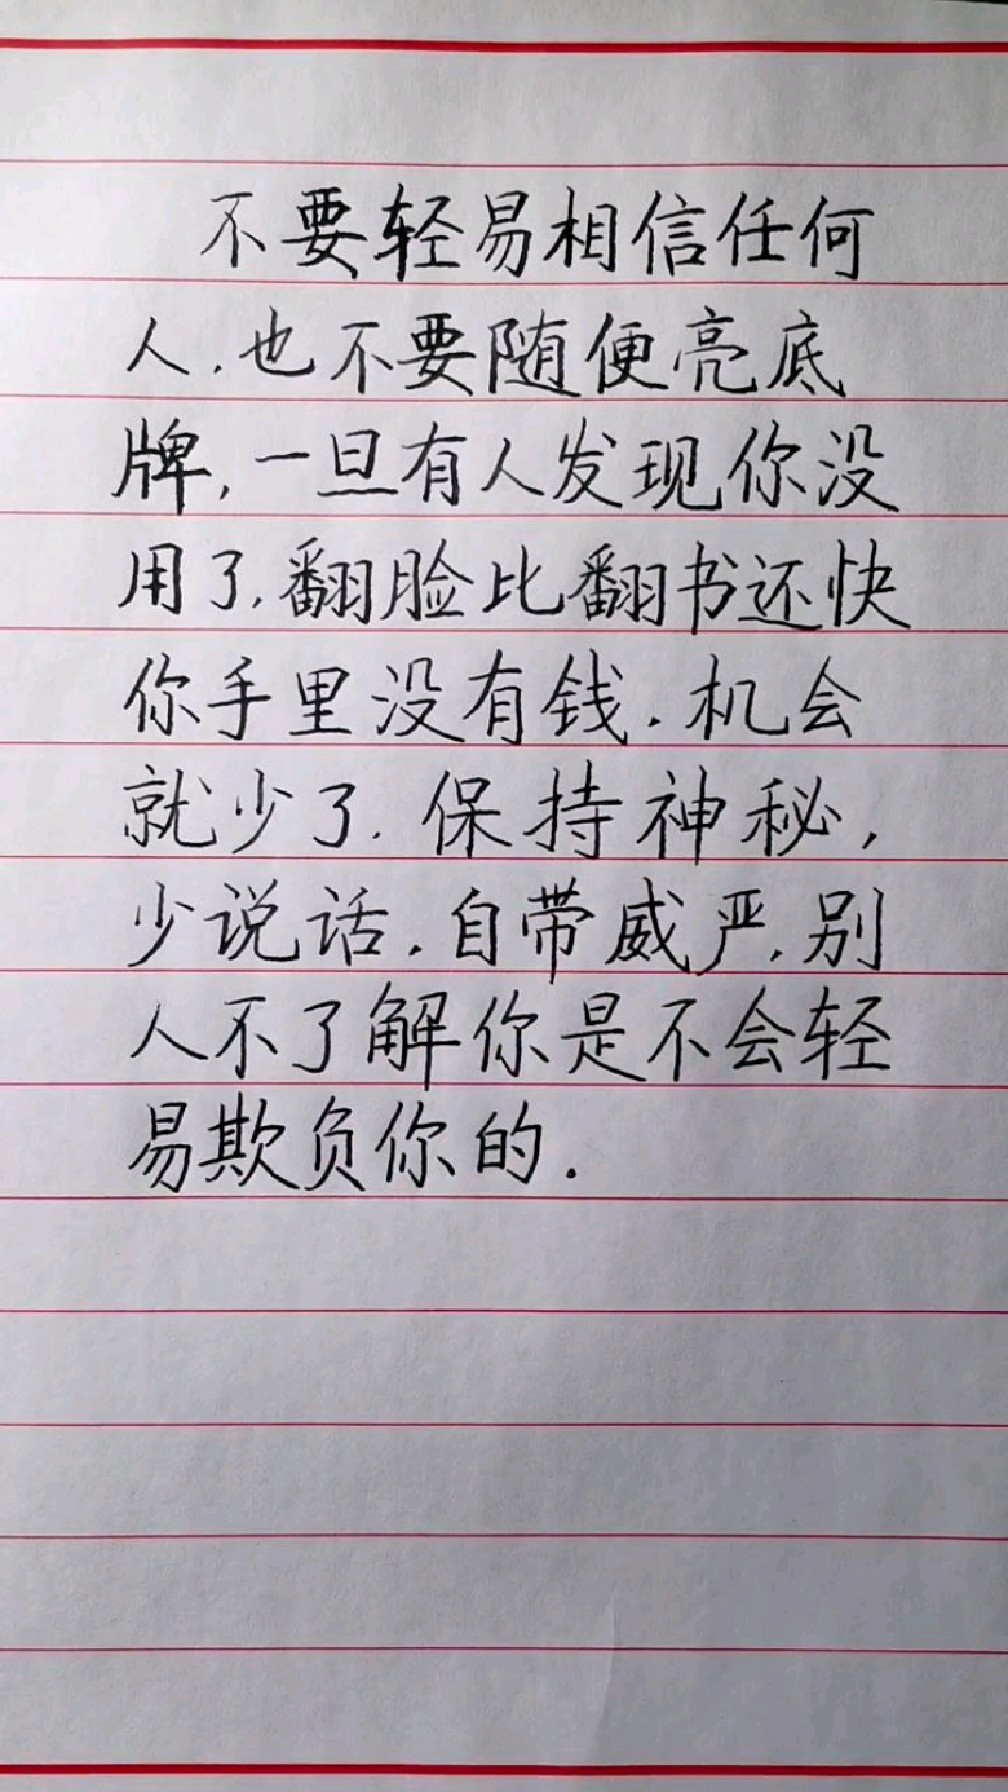 不要轻易相信任何
人.也不要随便亮底
牌,一旦有人发现你没
用了,翻脸比翻书还快
你手里没有钱.机会
就少了.保持神秘,
少说话.自带威严.别
人不了解你是不会轻
易欺负你的.